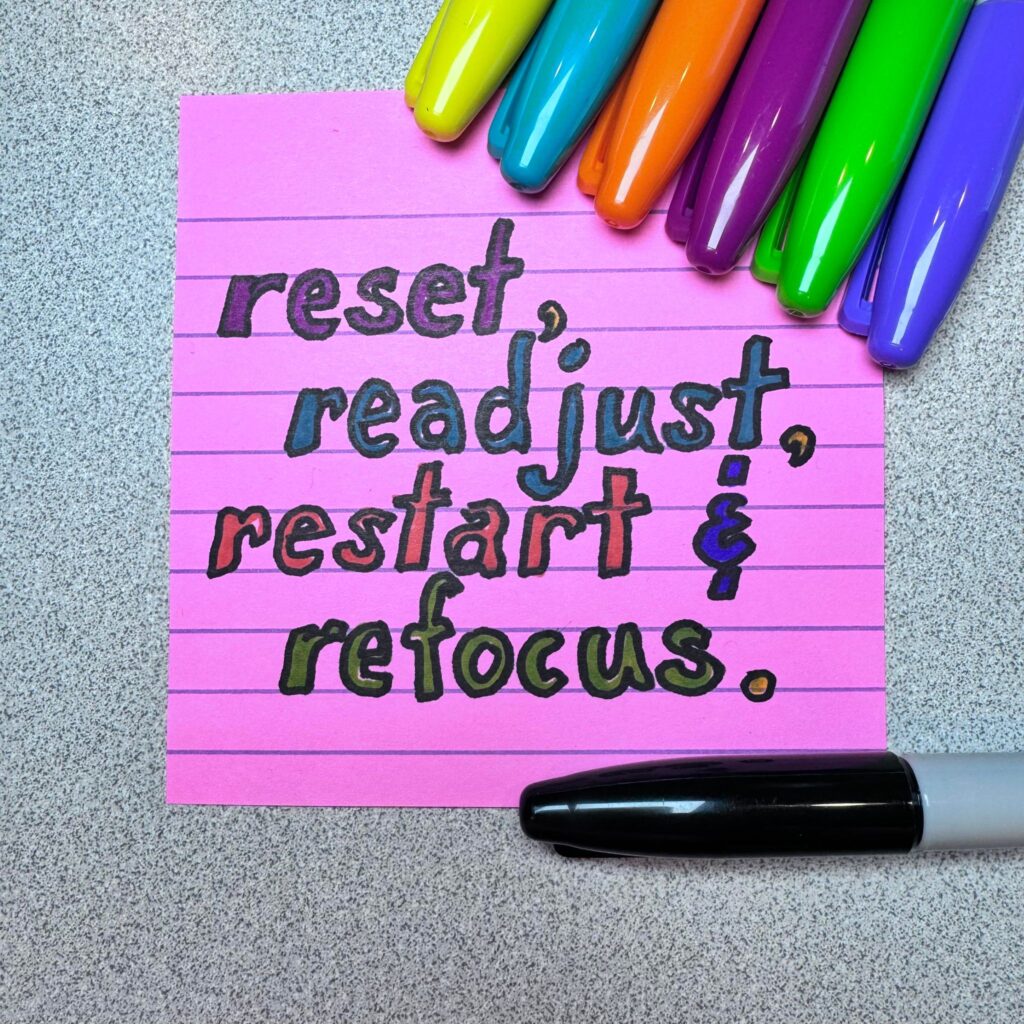 reset,
readjust,
restart &
refocus.